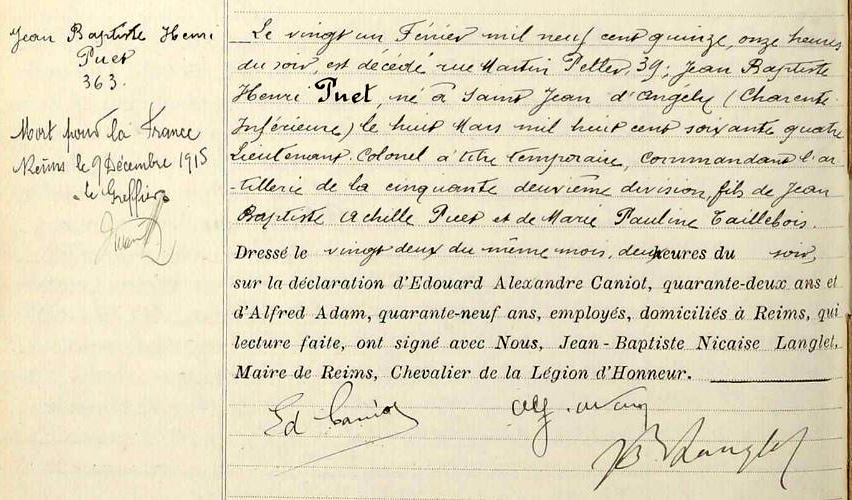 Jean Baptiste Henri
Puet
363.
Mort pour la France
Reims le 9 Décembre 1915
le Greffier
Le vingt un Février mil neuf cent quinze, onze heures
du soir, est décédé rue Martin Peller, 39; Jean Baptiste
Henri Puet, né à Saint Jean d'Angely (Charente
Inférieure) le huit Mars mil huit cent soixante quatre
Lieutenant-Colonel à titre temporaire, commandant l'ar-
-tillerie de la cinquante deuxième division, fils de Jean
Baptiste Achille Puet et de Marie Pauline Taillebois.
Dressé le vingt deux du même mois, deux heures du soir,
sur la déclaration d'Edouard Alexandre Caniot, quarante-deux ans et
d'Alfred Adam, quarante-neuf ans, employés, domiciliés à Reims, qui
lecture faite, ont signé avec Nous, Jean-Baptiste Nicaise Langlet,
Maire de Reims, Chevalier de la Légion d'Honneur.
Ed Caniot
Alf. Adam
JB Langlet